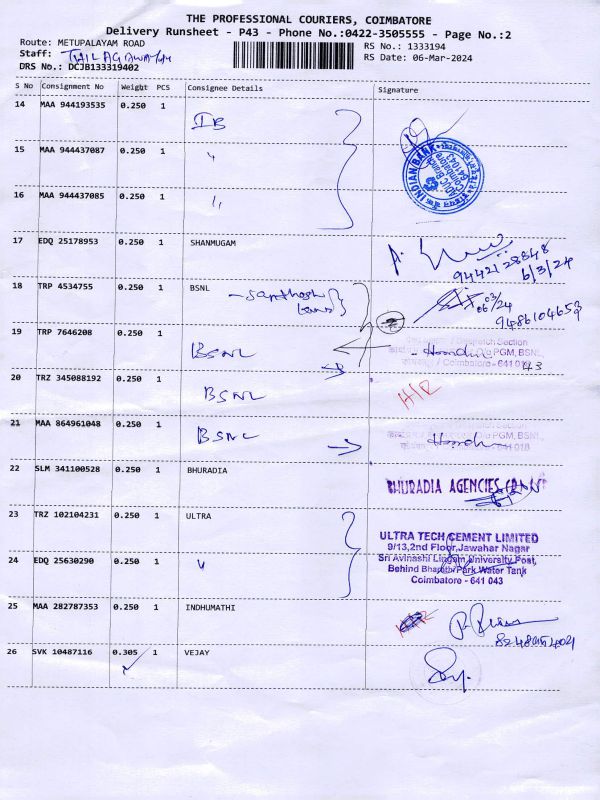 THE PROFESSIONAL COURIERS, COIMBATORE
Delivery Runsheet - P43 - Phone No.:0422-3505555 - Page No.:2
Route: METUPALAYAM ROAD
RS No.: 1333194
Staff:
RS Date: 06-Mar-2024
DRS No.: DCJB133319402
S No Consignment No Weight PCS Consignee Details Signature
14 MAA 944193535 0.250 1 IB
15 MAA 944437087 0.250 1 "
INDIAN BANK
Coimbatore
641043
16 MAA 944437085 0.250 1 "
17 EDQ 25178953 0.250 1 SHANMUGAM
9442128348
6/3/24
18 TRP 4534755 0.250 1 BSNL
06/03/24
9486104653
19 TRP 7646208 0.250 1 BSNL
Despatch Section
PGM, BSNL,
Coimbatore - 641 0
43
20 TRZ 345088192 0.250 1 BSNL
H/R
21 MAA 864961048 0.250 1 BSNL
Section
PGM, BSNL,
22 SLM 341100528 0.250 1 BHURADIA
BHURADIA AGENCIES
23 TRZ 102104231 0.250 1 ULTRA
ULTRA TECH CEMENT LIMITED
9/13,2nd Floor,Jawahar Nagar
Sri Avinashi Lingam University Post,
Behind Bharathi Park Water Tank
Coimbatore - 641 043
24 EDQ 25630290 0.250 1 "
25 MAA 282787353 0.250 1 INDHUMATHI
26 SVK 10487116 0.305 1 VEJAY